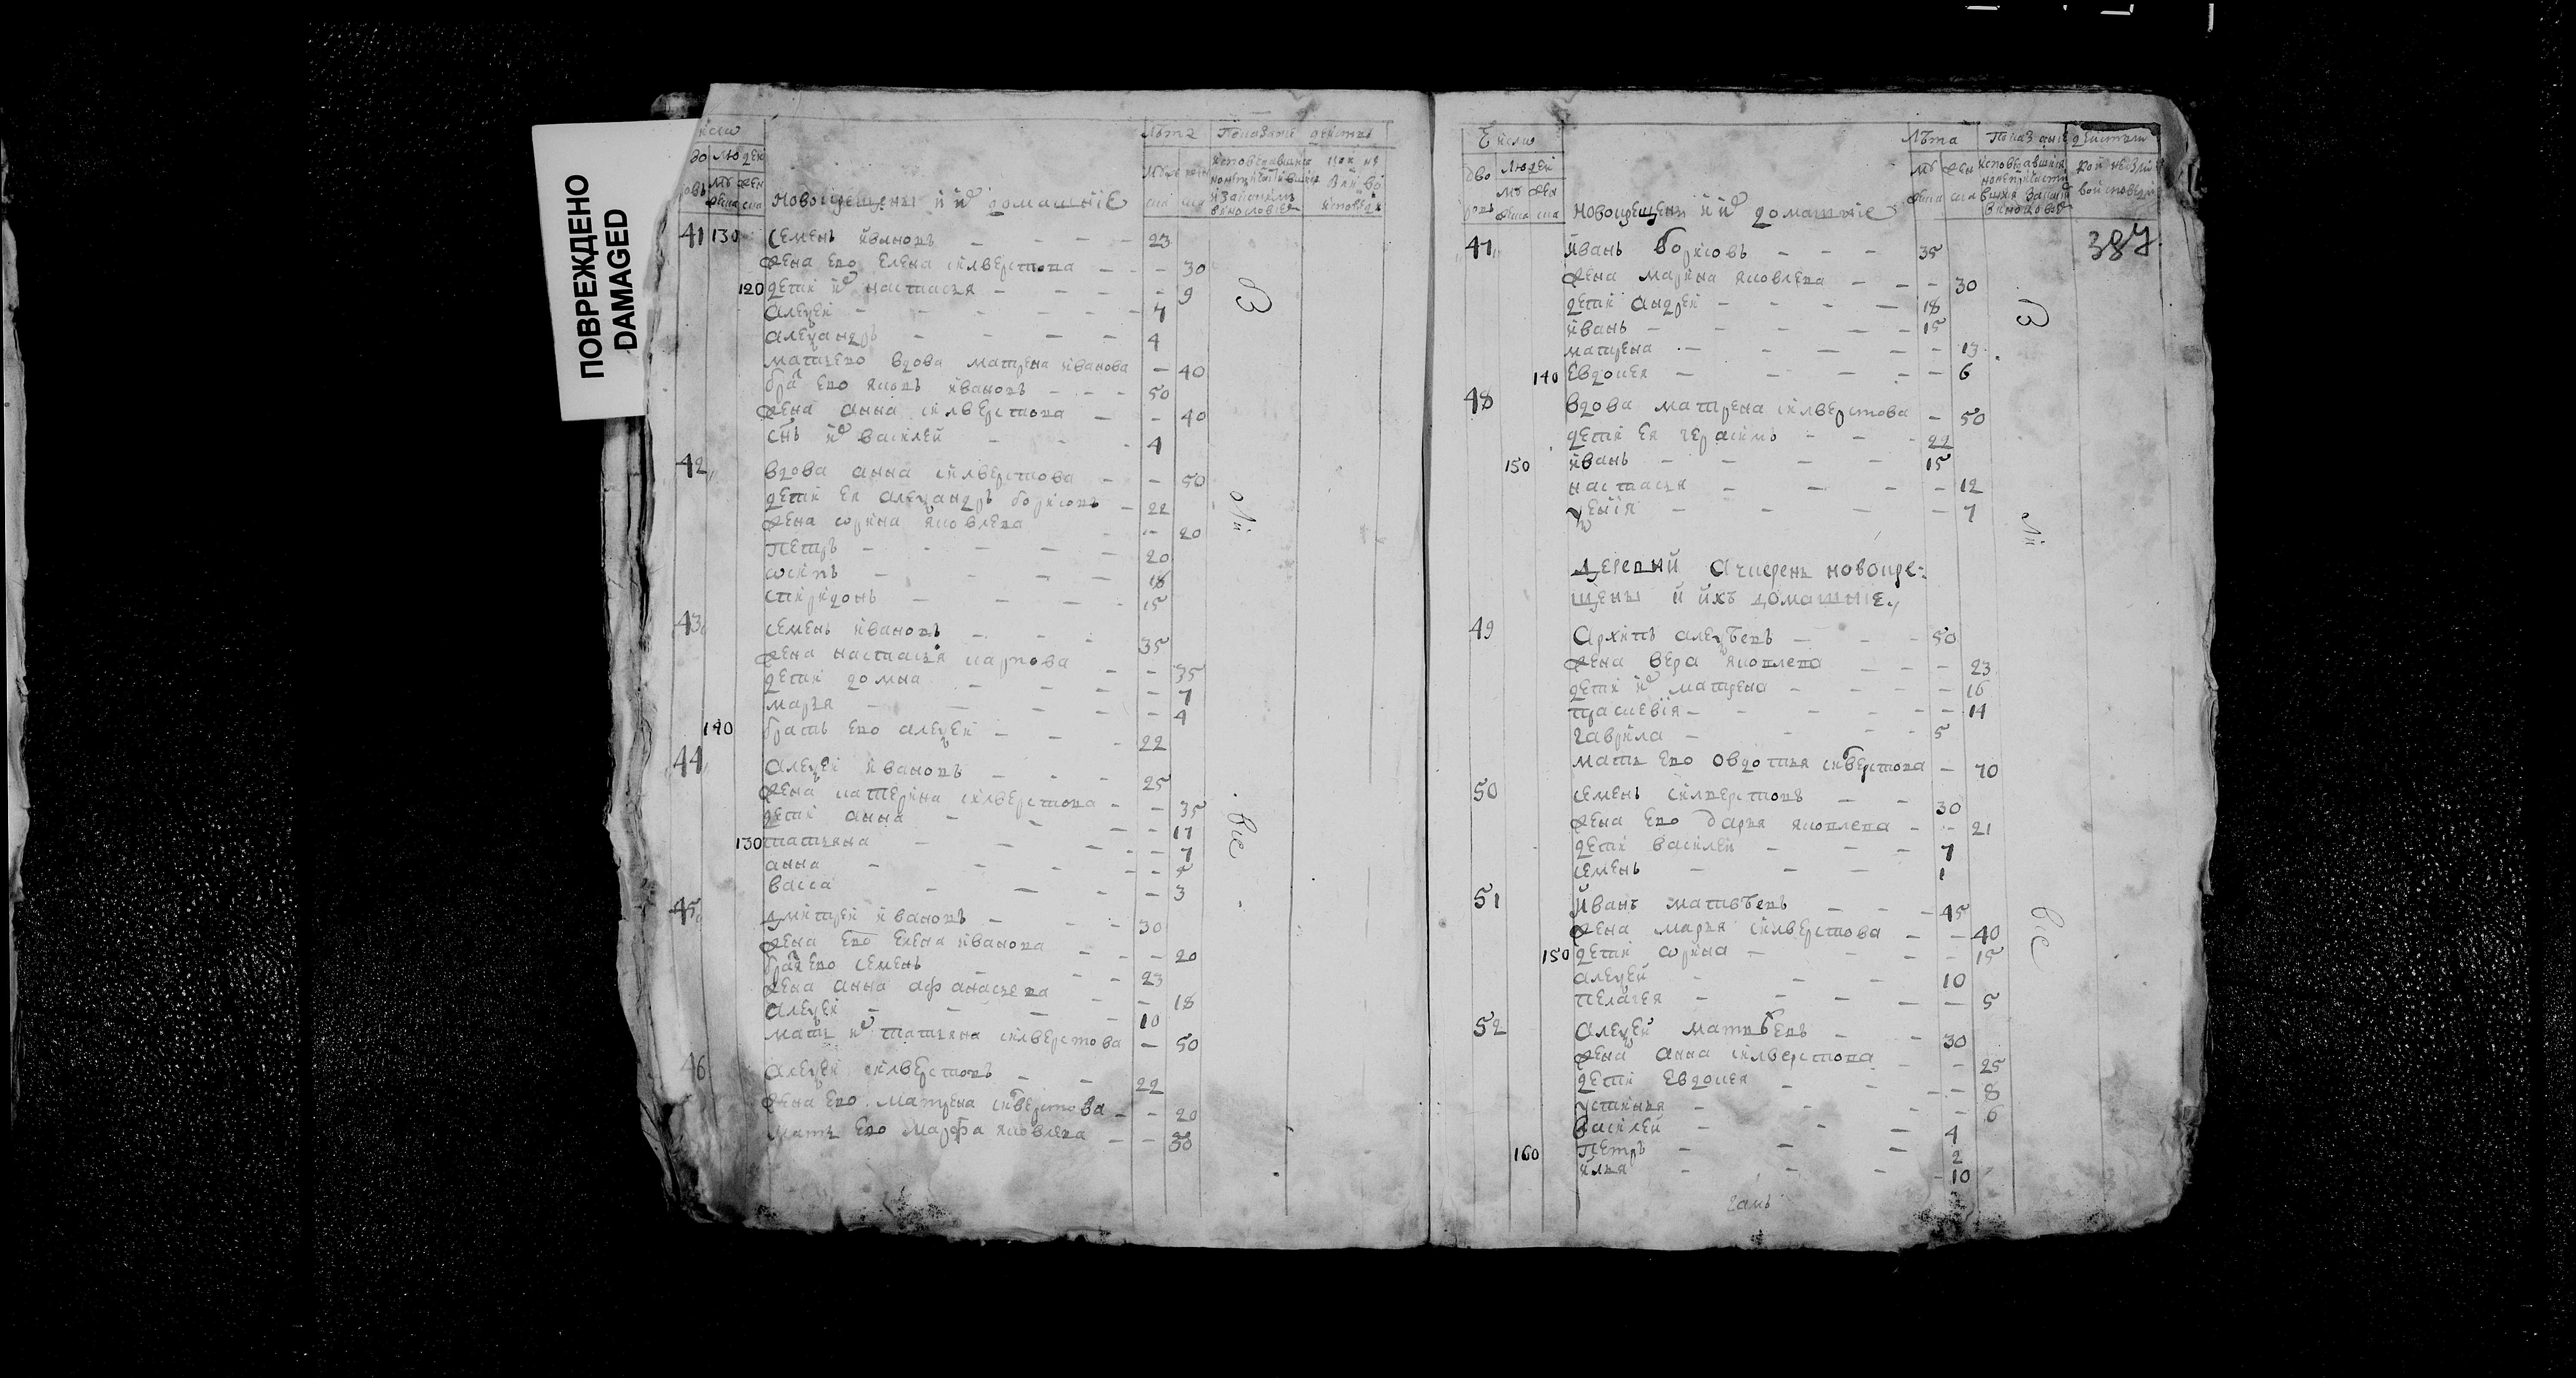 ПОВРЕЖДЕНО
DAMAGED
Число
Лѣта
Показание действа
дво ровъ
людей
мужеска
женска
Новокрещены и их домашние
41 130 Семенъ Ивановъ 23
жена ево Елена Силверстова 30
120 дети их Настасья 9
Алексей 7
Александръ 4
мать ево вдова Матрена Иванова 40
брат ево Яковъ Ивановъ 50
жена Анна Силверстова 40
снъ их Василей 4
42 вдова Анна Силверстова 50
дети ея Александръ Борисовъ 22
жена Ирина Яковлева 20
Петръ 20
Осипъ 18
Спиридонъ 15
43 Семенъ Ивановъ 35
жена Настасья Карпова 35
дети Домна 7
Марья 4
140 братъ ево Алексей 22
44 Алексей Ивановъ 25
жена Катерина Силверстова 35
дети Анна 17
130 Татьяна 7
Анна
Васса 3
45 Дмитрей Ивановъ 30
жена ево Елена Иванова 20
брат ево Семенъ 23
жена Анна Афанасьева 18
Алексей 10
мать их Татьяна Силверстова 50
46 Алексей Силверстовъ 22
жена ево Матрена Силверстова 20
мать ево Марфа Яковлева 50
Вси
Число
Лѣта
Показание действа
дво ровъ
людей
мужеска
женска
Новокрещены и их домашние
387
47 Иванъ Борисовъ 35
жена Марина Яковлева 30
дети Андрей 18
Иванъ 15
Матрена 13
140 Евдокея 6
48 вдова Матрена Силверстова 50
дети ея Герасимъ 22
150 Иванъ 15
Настасья 12
Ксения 7
Деревни Ачкерень новокре-
щены и ихъ домашние
49 Архипъ Алексѣевъ 50
жена Вера Яковлева 23
дети их Матрена 16
Прасковия 14
Гаврила 5
мать ево Овдотья Силверстова 70
50 Семенъ Силверстовъ 30
жена ево Дарья Яковлева 21
дети Василей 7
Семенъ 1
51 Иванъ Матвѣевъ 45
жена Марья Силверстова 40
150 дети Ирина 15
Алексей 10
Пелагея 5
52 Алексей Матвѣевъ 30
жена Анна Силверстова 25
дети Евдокея 8
Устинья 6
Василей 4
160 Петръ 2
Илья 10
Вси